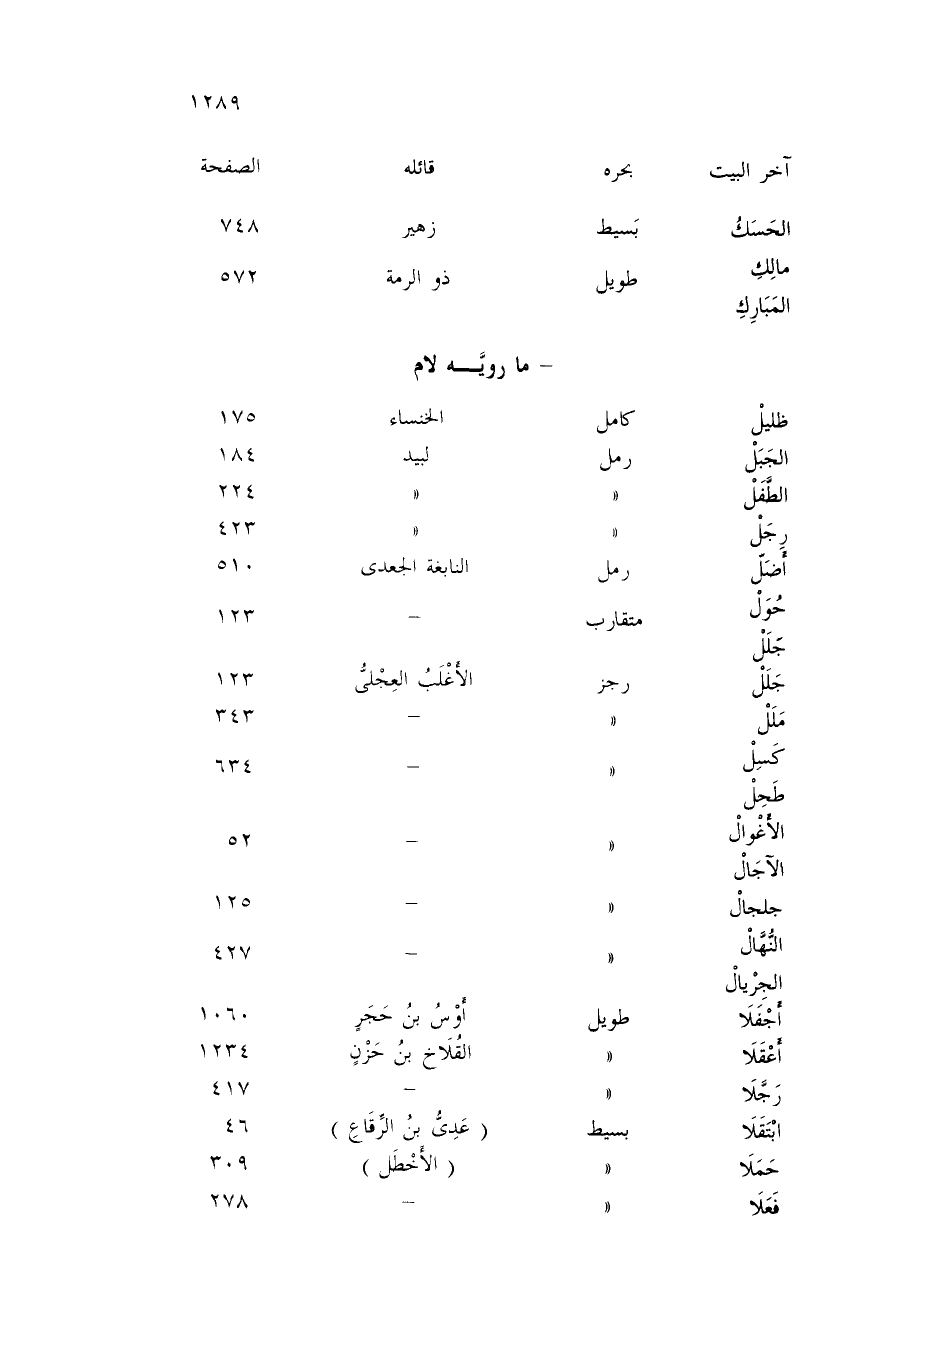 ١٢٨٩
آخر البيت بحره قائله الصفحة
الحَسَكُ بَسيط زهير ٧٤٨
مالِكِ طويل ذو الرمة ٥٧٢
المَبَارِكِ
– ما رويَّـــه لام
ظليلْ كامل الخنساء ١٧٥
الجَبَلْ رمل لبيد ١٨٤
الطَّفَلْ » » ٢٢٤
رِجَلْ » » ٤٢٣
أَضَلّ رمل النابغة الجعدى ٥١٠
حُوَلْ متقارب – ١٢٣
جَلَلْ
جَلَلْ رجز الأَغْلَبُ العِجْلىُّ ١٢٣
مَلَلْ » – ٣٤٣
كَسِلْ » – ٦٣٤
طَحِلْ
الأَغْوالْ » – ٥٢
الآجَالْ
جلجالْ » – ١٢٥
النُّهَّالْ » – ٤٢٧
الجِرْيالْ
أَجْفَلَا طويل أَوْسُ بنُ حَجَرٍ ١٠٦٠
أَعْقَلَا » القُلَاخ بنُ حَزْنٍ ١٢٣٤
رَجَّلَا » – ٤١٧
ابْتَقَلَا بسيط ( عَدِىُّ بنُ الرِّقَاعِ ) ٤٦
حَمَلَا » ( الأَخْطَل ) ٣٠٩
فَعَلَا » – ٢٧٨